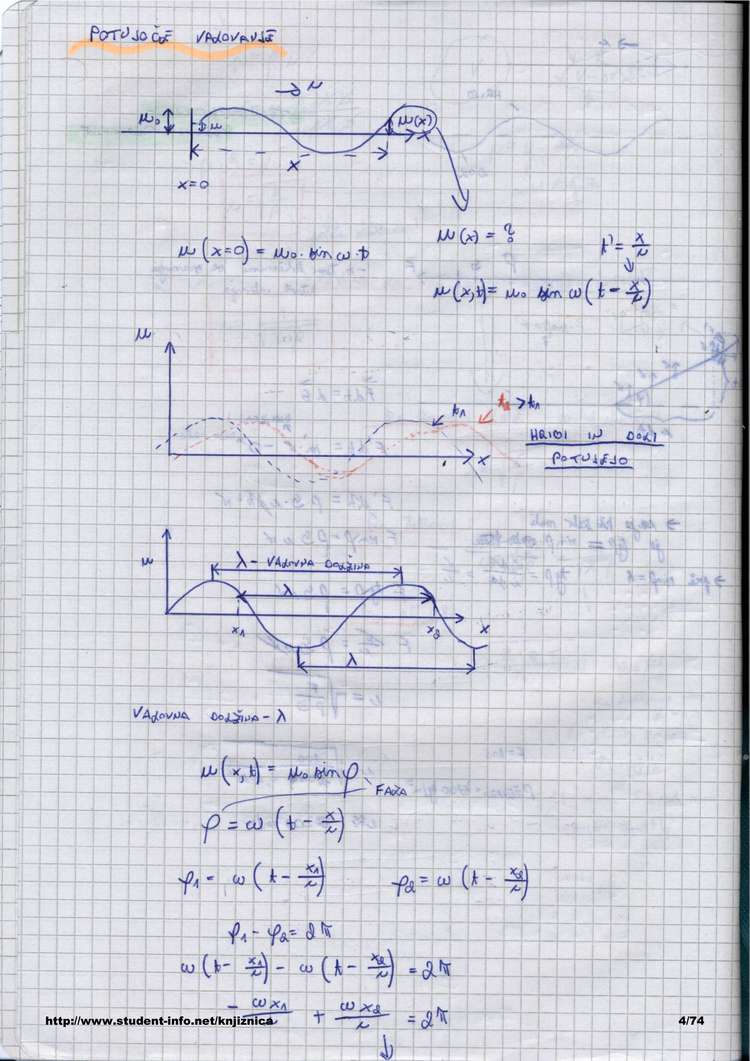 POTUJOČE VALOVANJE
→ v
u₀ u u(x)
x x
x=0
u(x) = ?
u(x=0) = u₀ · sin ω · t
t' = x/v
u(x,t) = u₀ sin ω (t - x/v)
u
t₁ t₂ > t₁
HRIBI IN DOLI
POTUJEJO
x
λ - VALOVNA DOLŽINA
u
λ
x₁ x₂ x
λ
VALOVNA DOLŽINA - λ
u(x,t) = u₀ sin φ
FAZA
φ = ω (t - x/v)
φ₁ = ω (t - x₁/v) φ₂ = ω (t - x₂/v)
φ₁ - φ₂ = 2π
ω (t - x₁/v) - ω (t - x₂/v) = 2π
- ωx₁/v + ωx₂/v = 2π
http://www.student-info.net/knjiznica 4/74